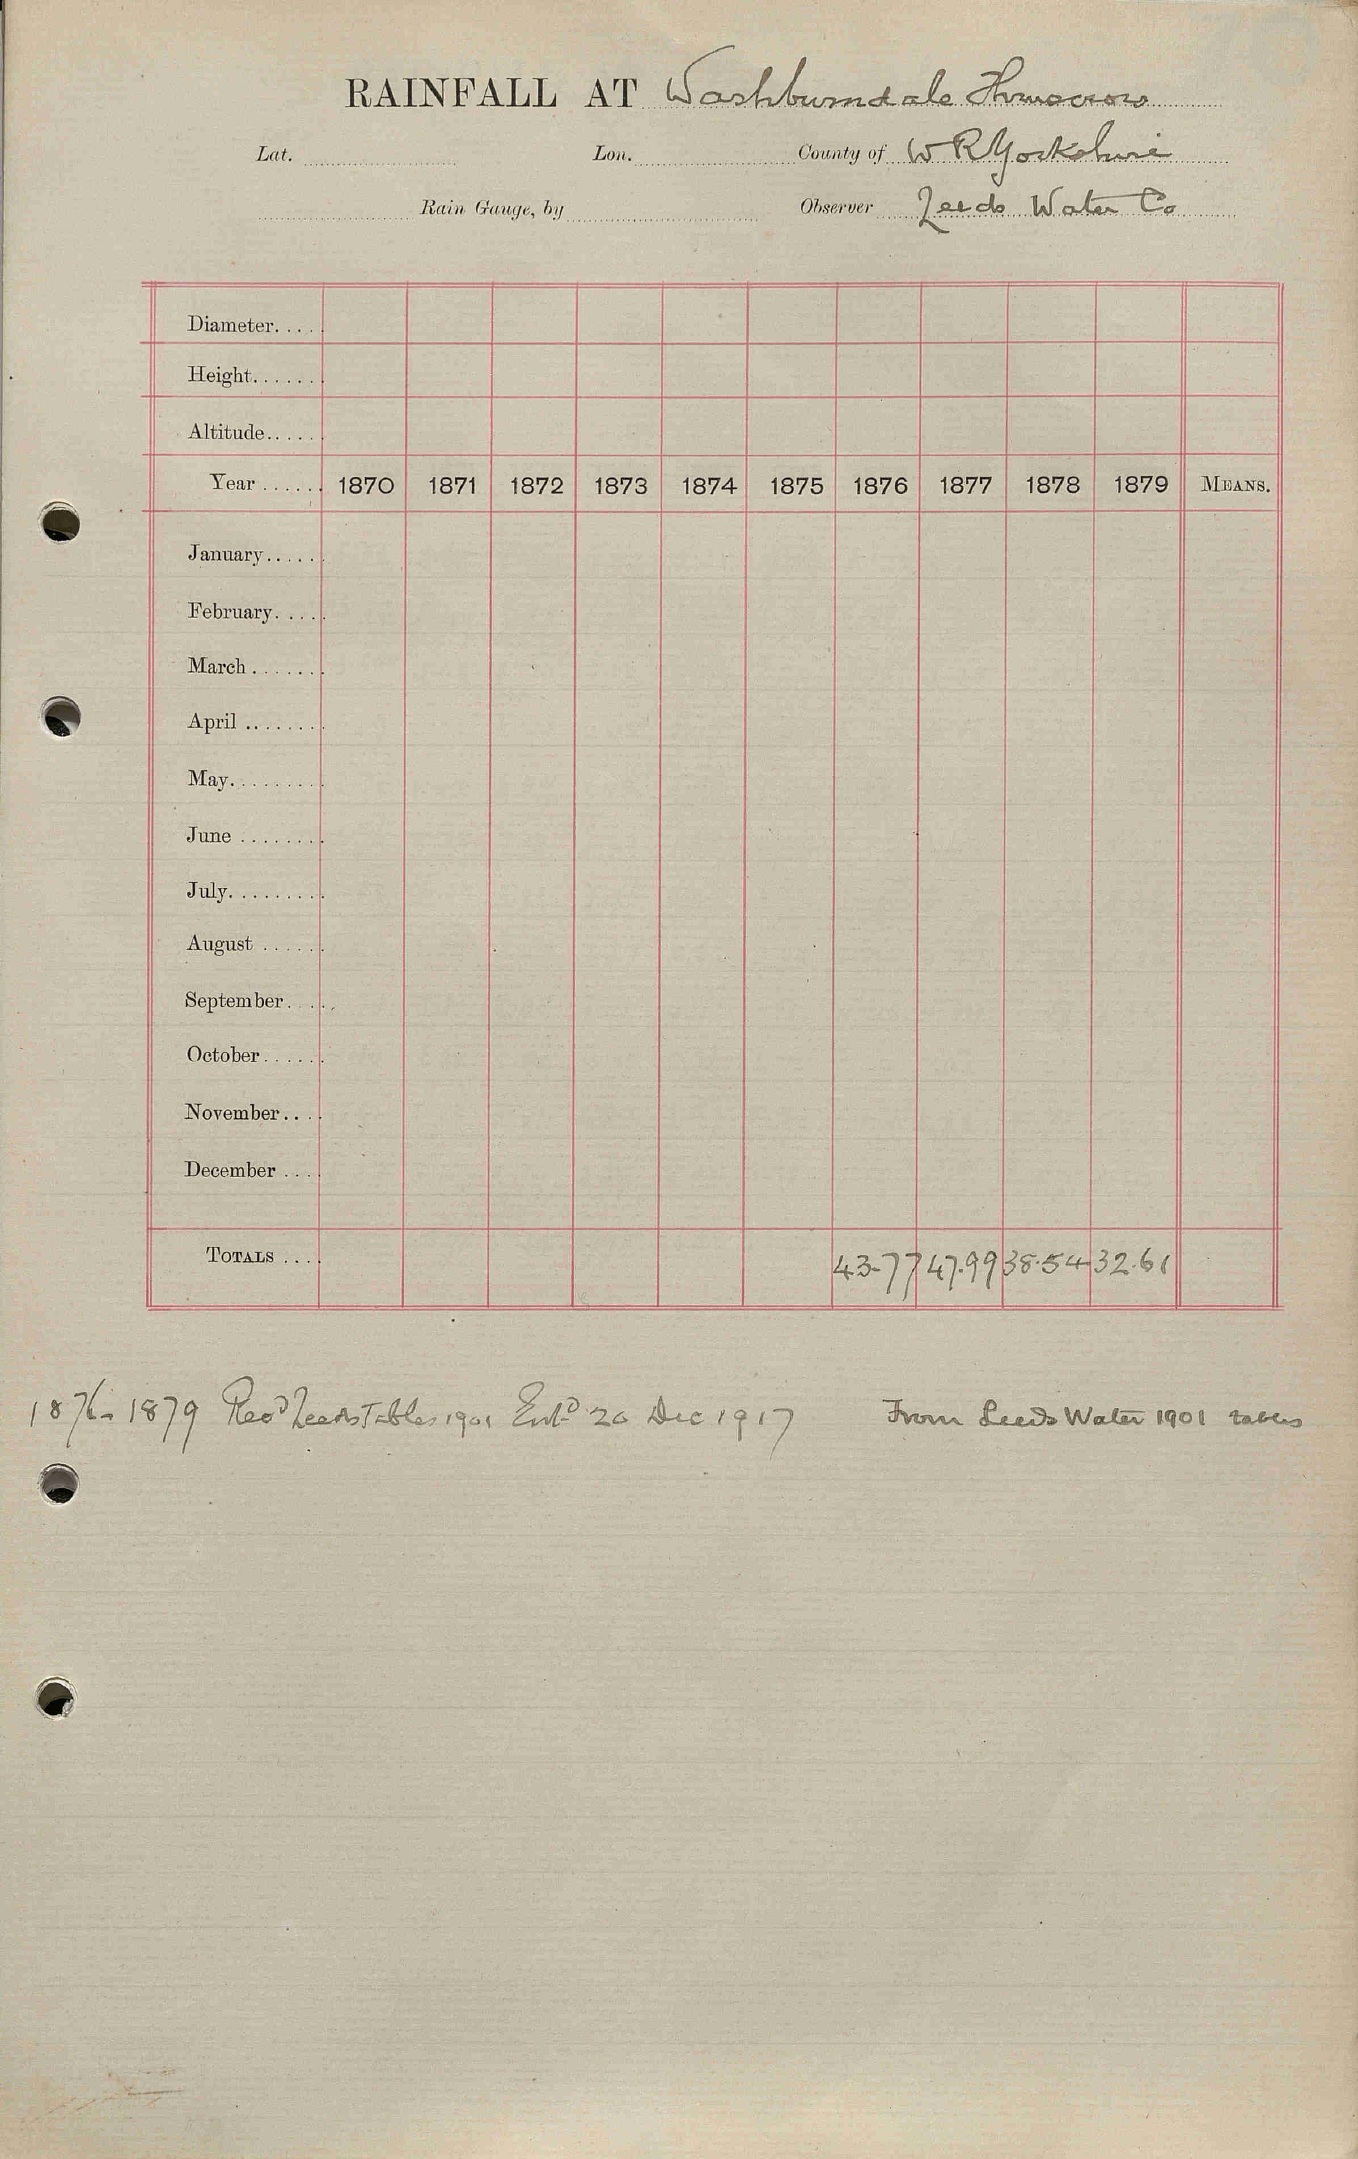 RAINFALL AT Washburndale Thruscross
Lat. Lon. County of W R Yorkshire
Rain Gauge, by Observer Leeds Water Co
Diameter.....
Height.......
Altitude.....
Year ...... 1870 1871 1872 1873 1874 1875 1876 1877 1878 1879 MEANS.
January......
February.....
March .......
April ........
May.........
June ........
July.........
August ......
September....
October......
November....
December ....
TOTALS .... 43.77 47.99 38.54 32.61
1876-1879 Rec'd Leeds Tables 1901 Ent'd 20 Dec 1917 From Leeds Water 1901 tables